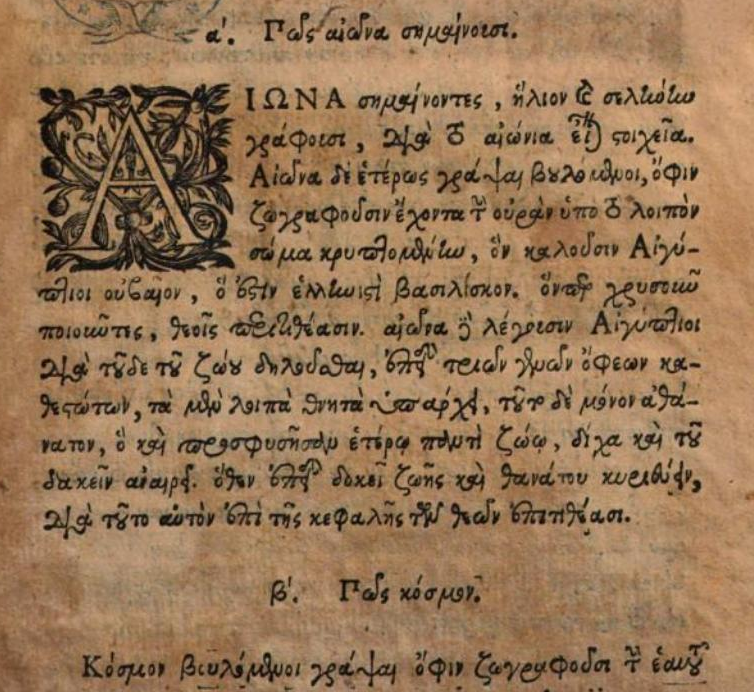 αʹ. Πῶς αἰῶνα σημαίνουσι.
ΑΙΩΝΑ σημαίνοντες, ἥλιον καὶ σελήνην
γράφουσι, διὰ τὸ αἰώνια εἶναι στοιχεῖα.
Αἰῶνα δὲ ἑτέρως γράψαι βουλόμενοι, ὄφιν
ζωγραφοῦσιν ἔχοντα τὴν οὐρὰν ὑπὸ τὸ λοιπὸν
σῶμα κρυπτομένην, ὃν καλοῦσιν Αἰγύ-
πτιοι οὐβαῖον, ὅ ἐστιν ἑλληνιστὶ βασιλίσκον. ὅνπερ χρυσοῦν
ποιοῦντες, θεοῖς περιτιθέασιν. αἰῶνα δὲ λέγουσιν Αἰγύπτιοι
διὰ τοῦδε τοῦ ζώου δηλοῦσθαι, ἐπειδὴ τριῶν γενῶν ὄφεων κα-
θεστώτων, τὰ μὲν λοιπὰ θνητὰ ὑπάρχει, τοῦτο δὲ μόνον ἀθά-
νατον, ὃ καὶ προσφυσῆσαν ἑτέρῳ παντὶ ζώῳ, δίχα καὶ τοῦ
δακεῖν ἀναιρεῖ. ὅθεν ἐπειδὴ δοκεῖ ζωῆς καὶ θανάτου κυριεύειν,
διὰ τοῦτο αὐτὸν ἐπὶ τῆς κεφαλῆς τῶν θεῶν ἐπιτιθέασι.
βʹ. Πῶς κόσμον.
Κόσμον βουλόμενοι γράψαι ὄφιν ζωγραφοῦσι τὴν ἑαυτοῦ